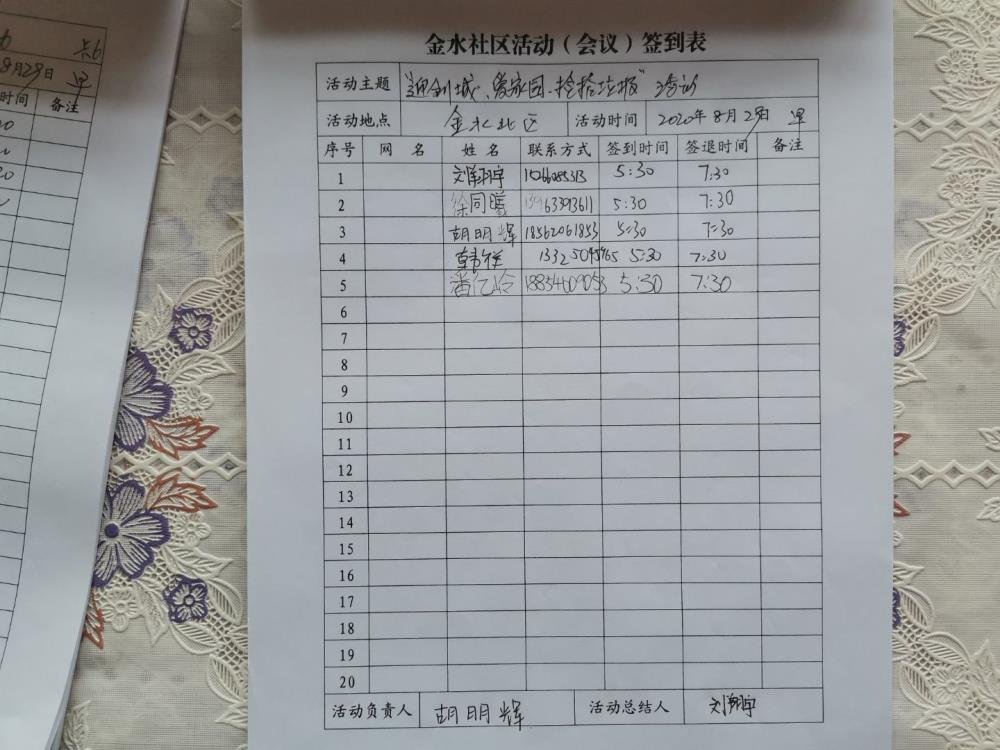 金水社区活动（会议）签到表
活动主题 "迎创城、爱家园、捡拾垃圾"活动
活动地点 金水北区 活动时间 2020年8月29日 早
序号 网名 姓名 联系方式 签到时间 签退时间 备注
1 刘翔宇 5:30 7:30
2 徐同曦 5:30 7:30
3 胡明辉 18562061853 5:30 7:30
4 5:30 7:30
5 5:30 7:30
6
7
8
9
10
11
12
13
14
15
16
17
18
19
20
活动负责人 胡明辉 活动总结人 刘翔宇
8月29日 早
时间 备注